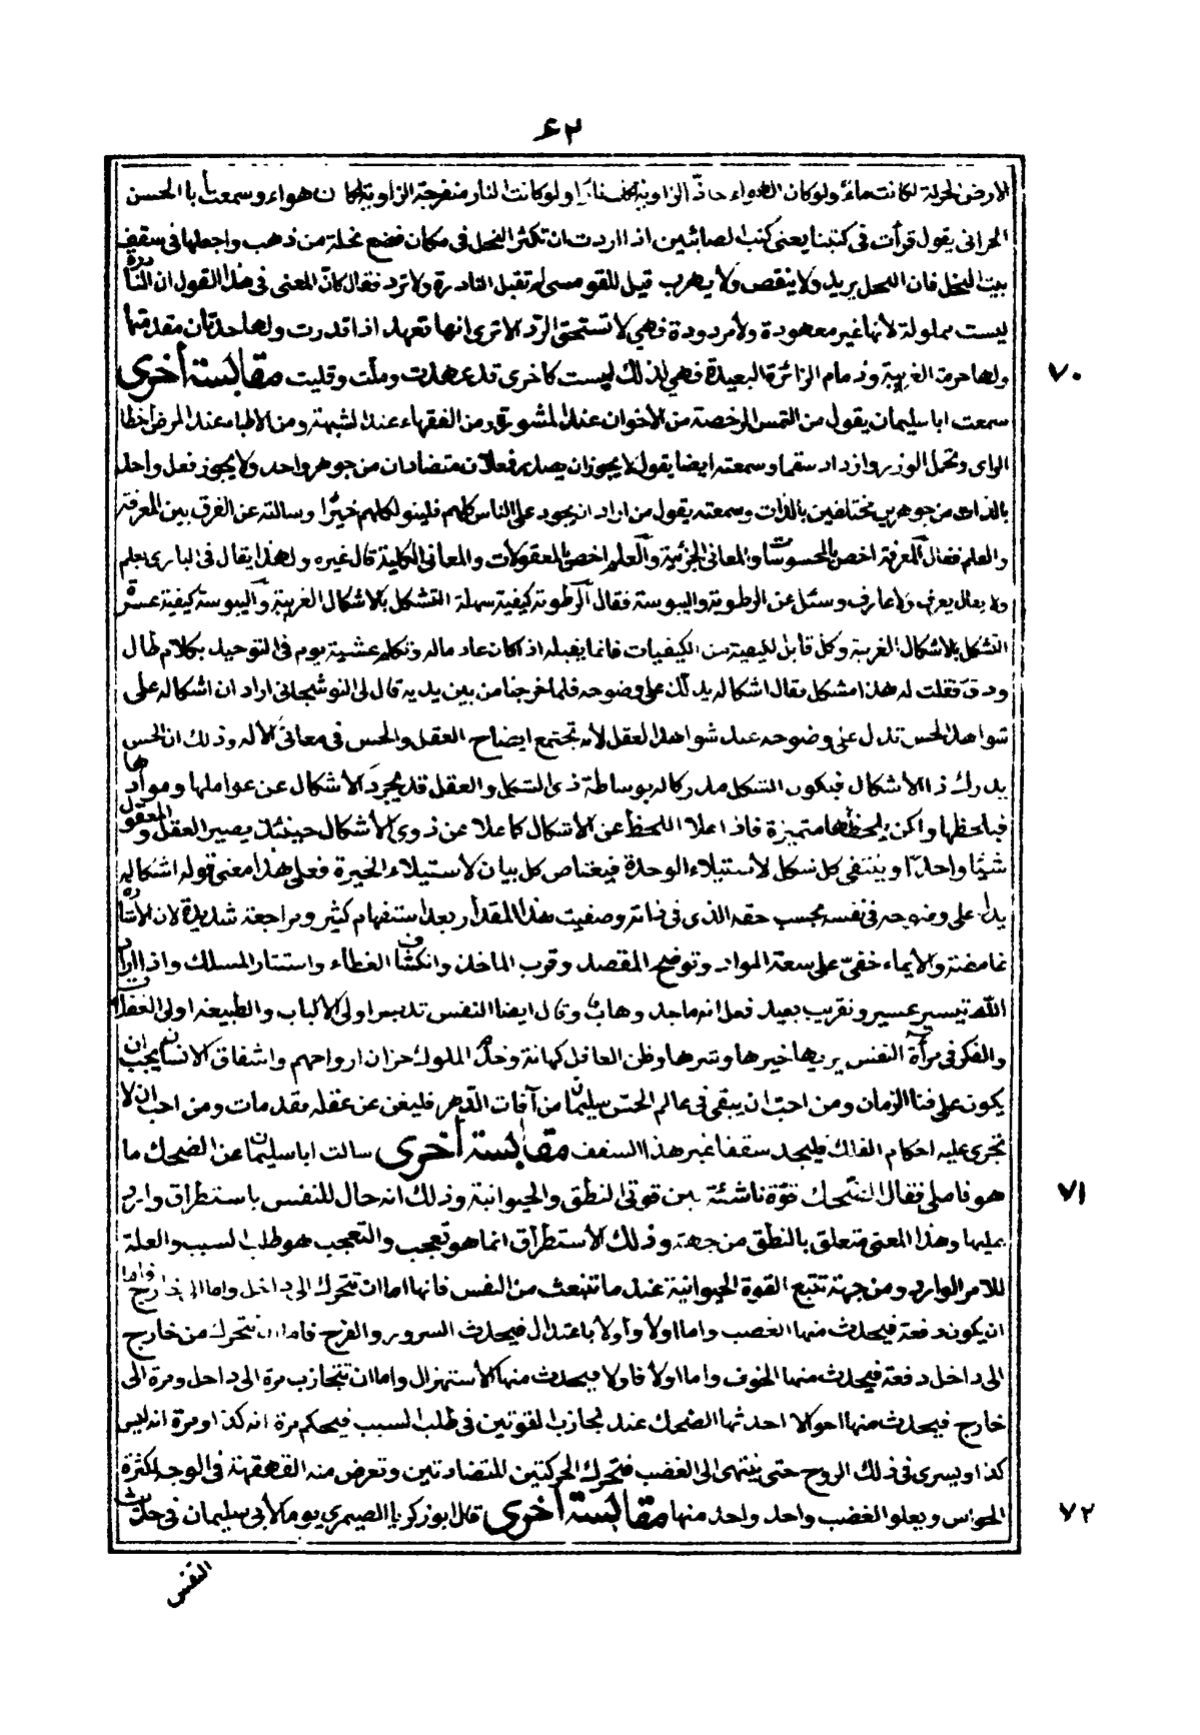 ٦٢
الارض لحركة لكانت ماء ولو كان الهواء حاد الزاوية لكان نارا ولو كانت النار منفرجة الزاوية لكان هواء وسمعت با الحسن
الحرانى يقول قرأت فى كتبنا يعنى كتب الصابئين اذا اردت ان تكثر النحل فى مكان فضع نحلة من ذهب واجعلها فى سقف
بيت النحل فان النحل يزيد ولا ينقص ولا يهرب قيل للقومسى لم تقبل النادرة ولا ترد فقال كان المعنى فى هذا القول ان النادرة
ليست مملولة لأنها غير معهودة ولا مردودة فهى لا تستحق الرد الا ترى انها تعهد اذا قدرت ولها حدثان مقدمتها
ولها حرمة الغريبة وذمام الزائرة البعيدة فهى لذلك ليست كاخرى قد عهدت وملت وقليت مقابسة أخرى
٧٠
سمعت ابا سليمان يقول من التمس الرخصة من الأخوان عند المشورة ومن الفقهاء عند الشبهة ومن الاطباء عند المرض أخطا
الراى وتحمل الوزر وازداد سقما وسمعته ايضا يقول لا يجوز ان يصدر فعلان متضادان من جوهر واحد ولا يجوز فعل واحد
بالذات من جوهرين مختلفين بالذات وسمعته يقول من اراد ان يجود على الناس كلهم فلينو لكلهم خيرا وسالته عن الفرق بين المعرفة
والعلم فقال المعرفة اخص بالمحسوسات والمعانى الجزئية والعلم اخص بالمعقولات والمعانى الكلية قال غيره ولهذا يقال فى البارى يعلم
ولا يقال يعرف ولا عارف وسئل عن الرطوبة واليبوسة فقال الرطوبة كيفية سهلة التشكل بالاشكال الغريبة واليبوسة كيفية عسرة
التشكل بالاشكال الغريبة وكل قابل لكيفية من الكيفيات فانما يقبله اذا كان عادما له وتكلم عشية يوم فى التوحيد بكلام طال
ودق فقلت له هذا مشكل فقال اشكاله يدلك على وضوحه فلما خرجنا من بين يديه قال لى النوشجانى اراد ان اشكاله على
شواهد الحس تدل على وضوحه عند شواهد العقل لأنه تجتمع ايضاح العقل والحس فى معانى الآله وذلك ان الحس
يدرك ذا الأشكال فيكون الشكل مدركا له بوساطة ذى الشكل والعقل قد يجرد الأشكال عن عواملها وموادها
فيلحظها ولكن يلحظها متميزة فاذا علا اللحظ عن الاشكال كما علا عن ذوى الأشكال حينئذ يصير العقل والمعقول
شيئا واحدا وينتفى كل شكل لأستيلاء الوحدة فيعتاص كل بيان لأستيلاء الحيرة فعلى هذا معنى قوله اشكاله
يدل على وضوحه فى نفسه بحسب حقه الذى فى وصفيت هذا المقدار بعد استفهام كثير ومراجعة شديدة لان الأشارة
غامضة والايماء خفى على سعة المواد وتوضح المقصد وقرب الماخذ وانكشاف الغطاء واستتار المسلك واذا اراد
الله تيسير عسير وتقريب بعيد فعل انه ماجد وهاب وقال ايضا النفس تدبير اولى الألباب والطبيعة اولى العقل
والفكر فى مرآة النفس يريها خيرها وشرها وظن العاقل كهانة وخدم الملوك خزان ارواحهم واشفاق الانسان يجب ان
يكون على فنا الزمان ومن احب ان يبقى فى عالم الحس سليما من آفات الدهر فليغن عن عقله مقدمات ومن احب ان لا
تجرى عليه احكام الفلك فليجد سقفا غير هذا السقف مقابسة أخرى سالت ابا سليمان عن الضحك ما
هو فاملى فقال الضحك قوة ناشئة بين قوتى النطق والحيوانية وذلك انه حال للنفس باستطراق وارد
٧١
عليها وهذا المعنى متعلق بالنطق من جهة وذلك الأستطراق انما هو تعجب والتعجب هو طلب السبب والعلة
للامر الوارد ومن جهة تتبع القوة الحيوانية عند ما تنبعث من النفس فانها اما ان تتحرك الى داخل واما الى خارج واما
ان يكون دفعة فيحدث منها الغضب واما اولا وأولا باعتدال فيحدث السرور والفرح فاما ان تتحرك من خارج
الى داخل دفعة فيحدث منها الخوف واما اولا فاولا فيحدث منها الأستهزال واما ان تتجاذب مرة الى داخل ومرة الى
خارج فيحدث منها احوالا احدثها الضحك عند تجاذب القوتين فى طلب السبب فيحكم مرة انه كذا ومرة انه ليس
كذا ويسرى فى ذلك الروح حتى ينتهى الى الغضب فتحرك الحركتين المتضادتين وتعرض منه القهقهة فى الوجه لكثرة
الحواس ويعلو الغضب واحد واحد منها مقابسة أخرى قال ابو زكريا الصيمرى يوما لأبى سليمان فى حديث
٧٢
النفس